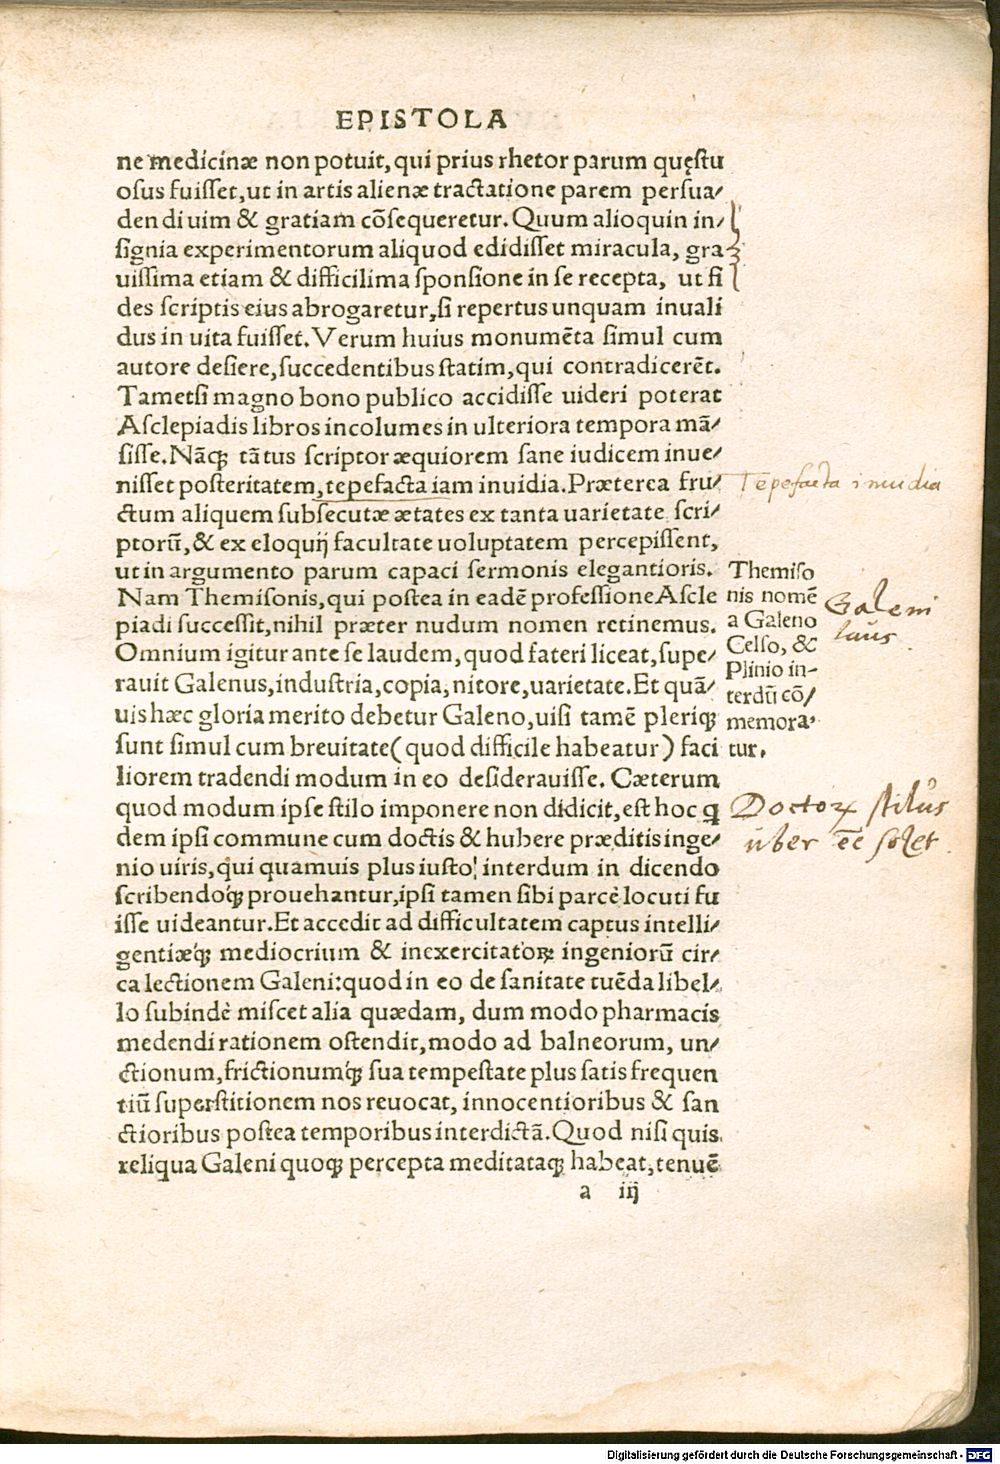 EPISTOLA
ne medicinæ non potuit, qui prius rhetor parum quęstu
osus fuisset, ut in artis alienæ tractatione parem persua-
dendi uim & gratiam cõsequeretur. Quum alioquin in-
signia experimentorum aliquod edidisset miracula, gra
uissima etiam & difficilima sponsione in se recepta, ut fi
des scriptis eius abrogaretur, si repertus unquam inuali
dus in uita fuisset. Verum huius monumẽta simul cum
autore desiere, succedentibus statim, qui contradicerẽt.
Tametsi magno bono publico accidisse uideri poterat
Asclepiadis libros incolumes in ulteriora tempora mã-
sisse. Nãqꝫ tãtus scriptor æquiorem sane iudicem inue-
nisset posteritatem, tepefacta iam inuidia. Præterea fru-
ctum aliquem subsecutæ ætates ex tanta uarietate scri-
ptorũ, & ex eloquij facultate uoluptatem percepissent,
ut in argumento parum capaci sermonis elegantioris.
Nam Themisonis, qui postea in eadẽ professione Ascle
piadi successit, nihil præter nudum nomen retinemus.
Omnium igitur ante se laudem, quod fateri liceat, supe-
rauit Galenus, industria, copia, nitore, uarietate. Et quã-
uis hæc gloria merito debetur Galeno, uisi tamẽ pleriqꝫ
sunt simul cum breuitate (quod difficile habeatur) faci
liorem tradendi modum in eo desiderauisse. Cæterum
quod modum ipse stilo imponere non didicit, est hoc q̃
dem ipsi commune cum doctis & hubere præditis inge-
nio uiris, qui quamuis plus iusto interdum in dicendo
scribendoq́ꝫ prouehantur, ipsi tamen sibi parcè locuti fu
isse uideantur. Et accedit ad difficultatem captus intelli-
gentiæq́ꝫ mediocrium & inexercitatoꝝ ingeniorũ cir-
ca lectionem Galeni: quod in eo de sanitate tuẽda libel-
lo subindè miscet alia quædam, dum modo pharmacis
medendi rationem ostendit, modo ad balneorum, un-
ctionum, frictionumq́ꝫ sua tempestate plus satis frequen
tiũ superstitionem nos reuocat, innocentioribus & san
ctioribus postea temporibus interdictã. Quod nisi quis
reliqua Galeni quoqꝫ percepta meditataqꝫ habeat, tenuẽ
a iij
Tepefacta inuidia
Themiso
nis nomẽ
a Galeno
Celso, &
Plinio in-
terdũ cõ-
memora-
tur.
Galeni
laus.
Doctoꝝ stilus
uber eẽ solet.
Digitalisierung gefördert durch die Deutsche Forschungsgemeinschaft - DFG